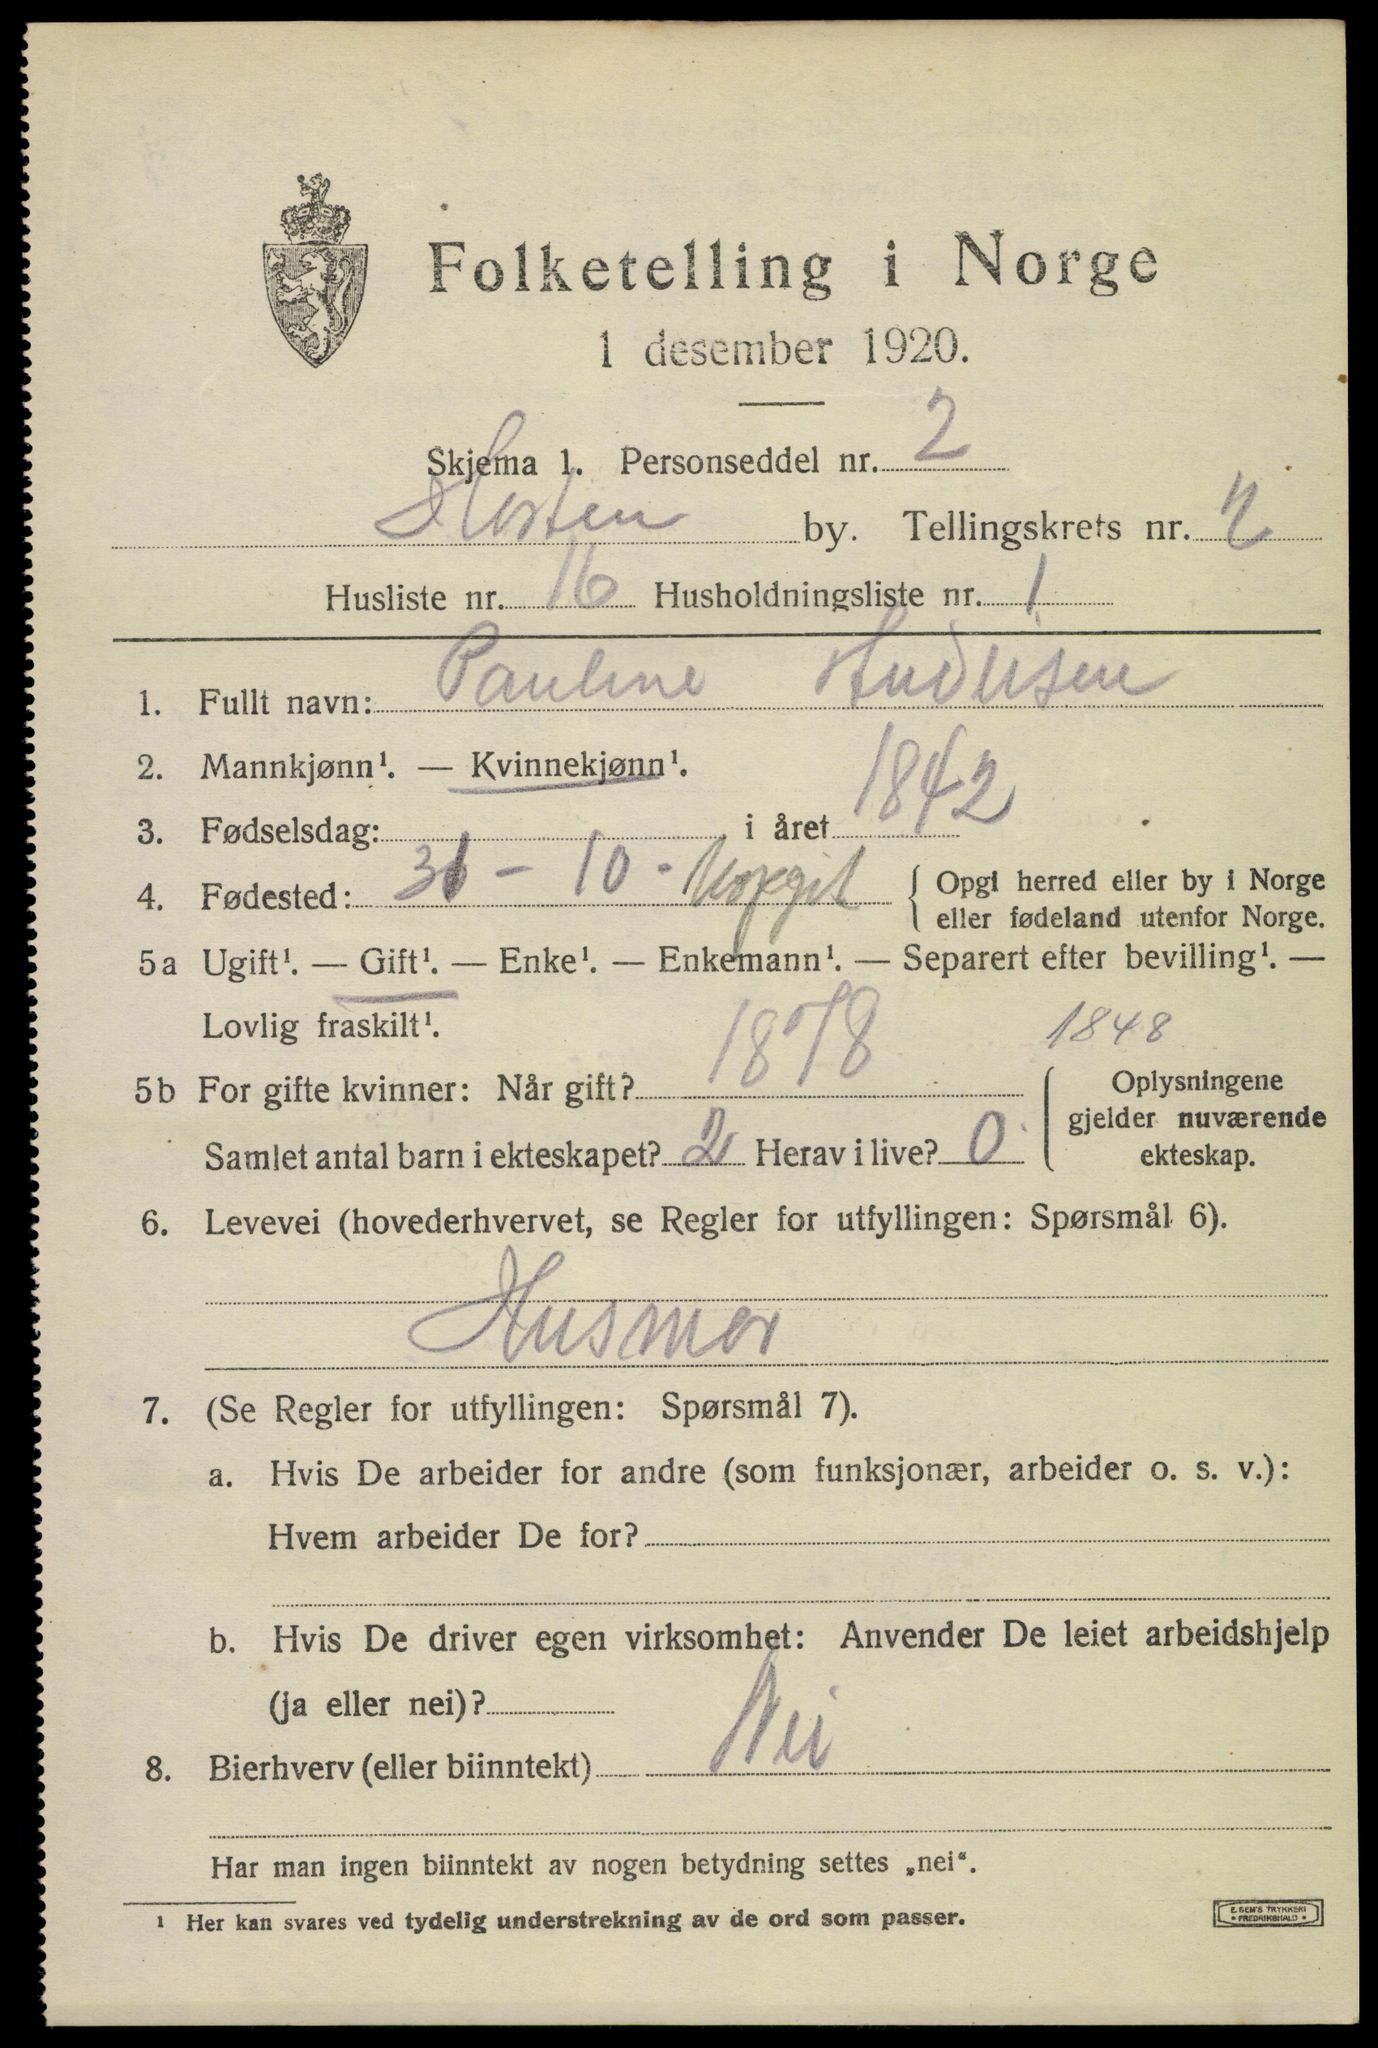 Folketelling i Norge
1 desember 1920.
Skjema 1. Personseddel nr. 2
Horten by. Tellingskrets nr. 2
Husliste nr. 16 Husholdningsliste nr. 1
1. Fullt navn: Pauline Andersen
2. Mannkjønn¹. — Kvinnekjønn¹.
3. Fødselsdag: i året 1842
4. Fødested: 31 - 10 - { Opgi herred eller by i Norge
eller fødeland utenfor Norge.
5a Ugift¹. — Gift¹. — Enke¹. — Enkemann¹. — Separert efter bevilling¹. —
Lovlig fraskilt¹.
1848
5b For gifte kvinner: Når gift? 1878
Samlet antal barn i ekteskapet? 2 Herav i live? 0
Oplysningene
gjelder nuværende
ekteskap.
6. Levevei (hovederhvervet, se Regler for utfyllingen: Spørsmål 6).
Husmor
7. (Se Regler for utfyllingen: Spørsmål 7).
a. Hvis De arbeider for andre (som funksjonær, arbeider o. s. v.):
Hvem arbeider De for?
b. Hvis De driver egen virksomhet: Anvender De leiet arbeidshjelp
(ja eller nei)?
8. Bierhverv (eller biinntekt) Nei
Har man ingen biinntekt av nogen betydning settes „nei“.
¹ Her kan svares ved tydelig understrekning av de ord som passer.
E. SEM'S TRYKKERI
• FREDRIKSHALD •